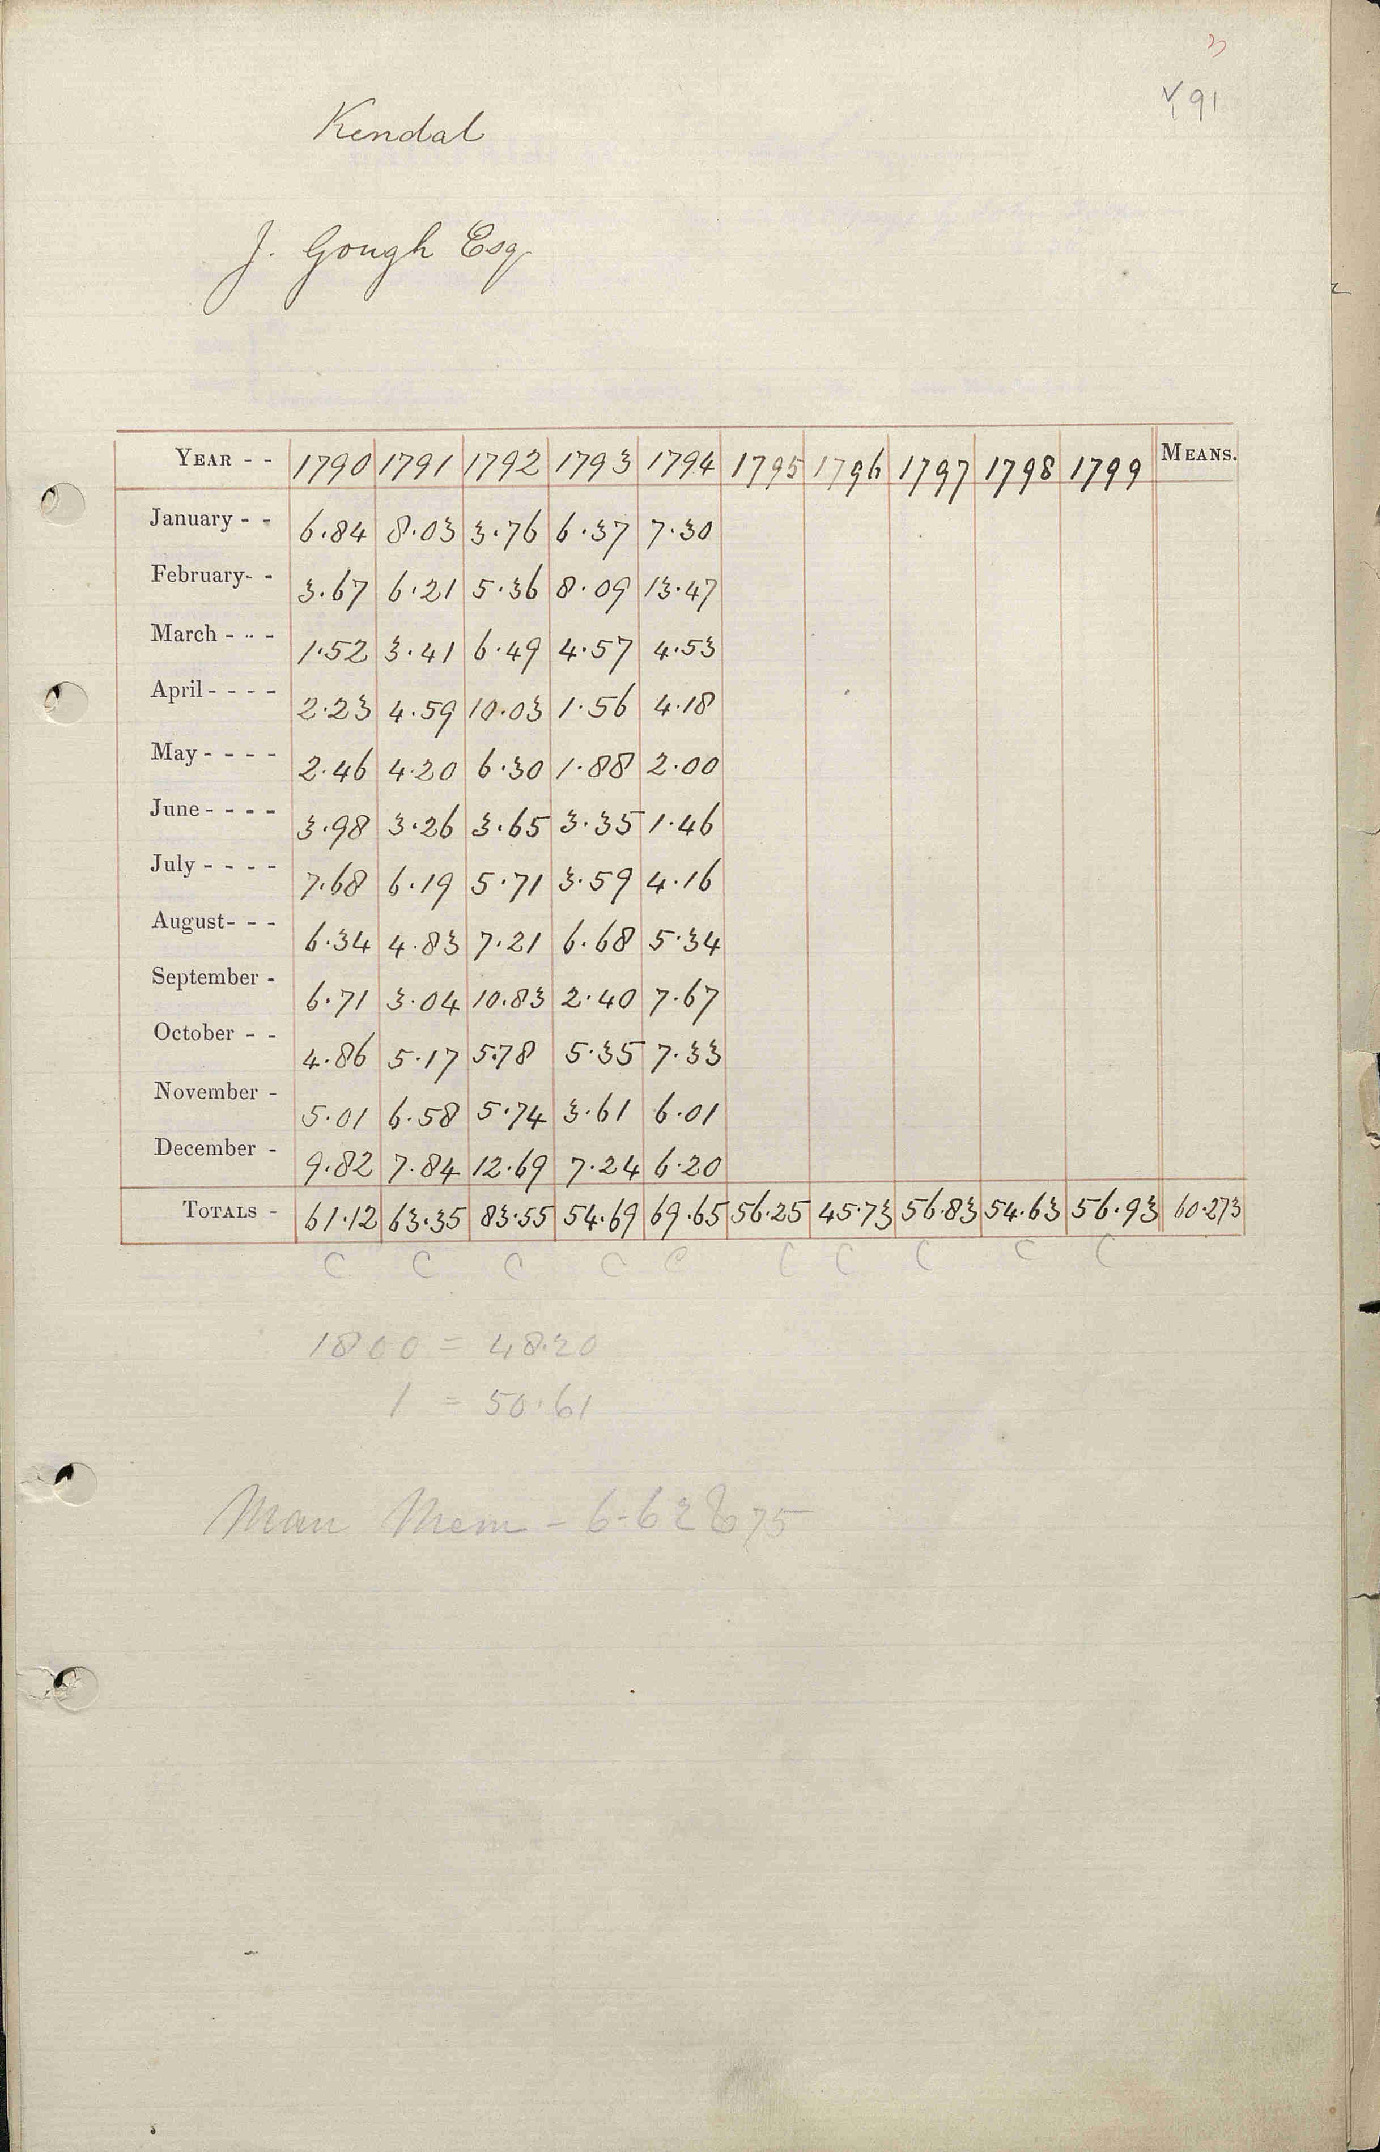 3
91
Kendal
J. Gough Esq
YEAR - - 1790 1791 1792 1793 1794 1795 1796 1797 1798 1799 MEANS.
January - - 6.84 8.03 3.76 6.37 7.30
February- - 3.67 6.21 5.36 8.09 13.47
March - - - 1.52 3.41 6.49 4.57 4.53
April - - - - 2.23 4.59 10.03 1.56 4.18
May - - - - 2.46 4.20 6.30 1.88 2.00
June - - - - 3.98 3.26 3.65 3.35 1.46
July - - - - 7.68 6.19 5.71 3.59 4.16
August- - - 6.34 4.83 7.21 6.68 5.34
September - 6.71 3.04 10.83 2.40 7.67
October - - 4.86 5.17 5.78 5.35 7.33
November - 5.01 6.58 5.74 3.61 6.01
December - 9.82 7.84 12.69 7.24 6.20
TOTALS - 61.12 63.35 83.55 54.69 69.65 56.25 45.73 56.83 54.63 56.93 60.273
C C C C C C C C C C
1800 = 48.20
1 = 50.61